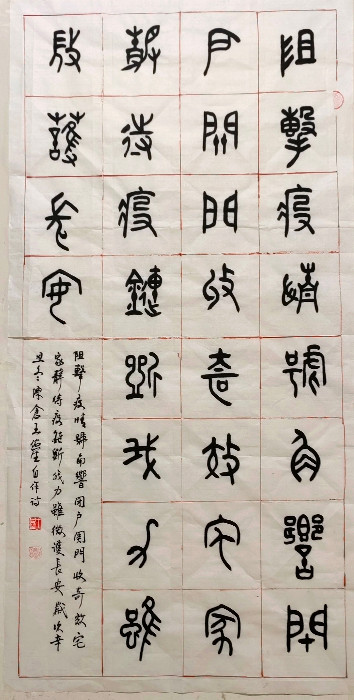 阻擊疫情號角響閉
户關門收奇效宅家
靜待疫鏈斷我力雖
微護長安
阻擊疫情號角響閉户關門收奇效宅
家靜待疫鏈斷我力雖微護長安歲次辛
丑冬陳倉王生自作詩